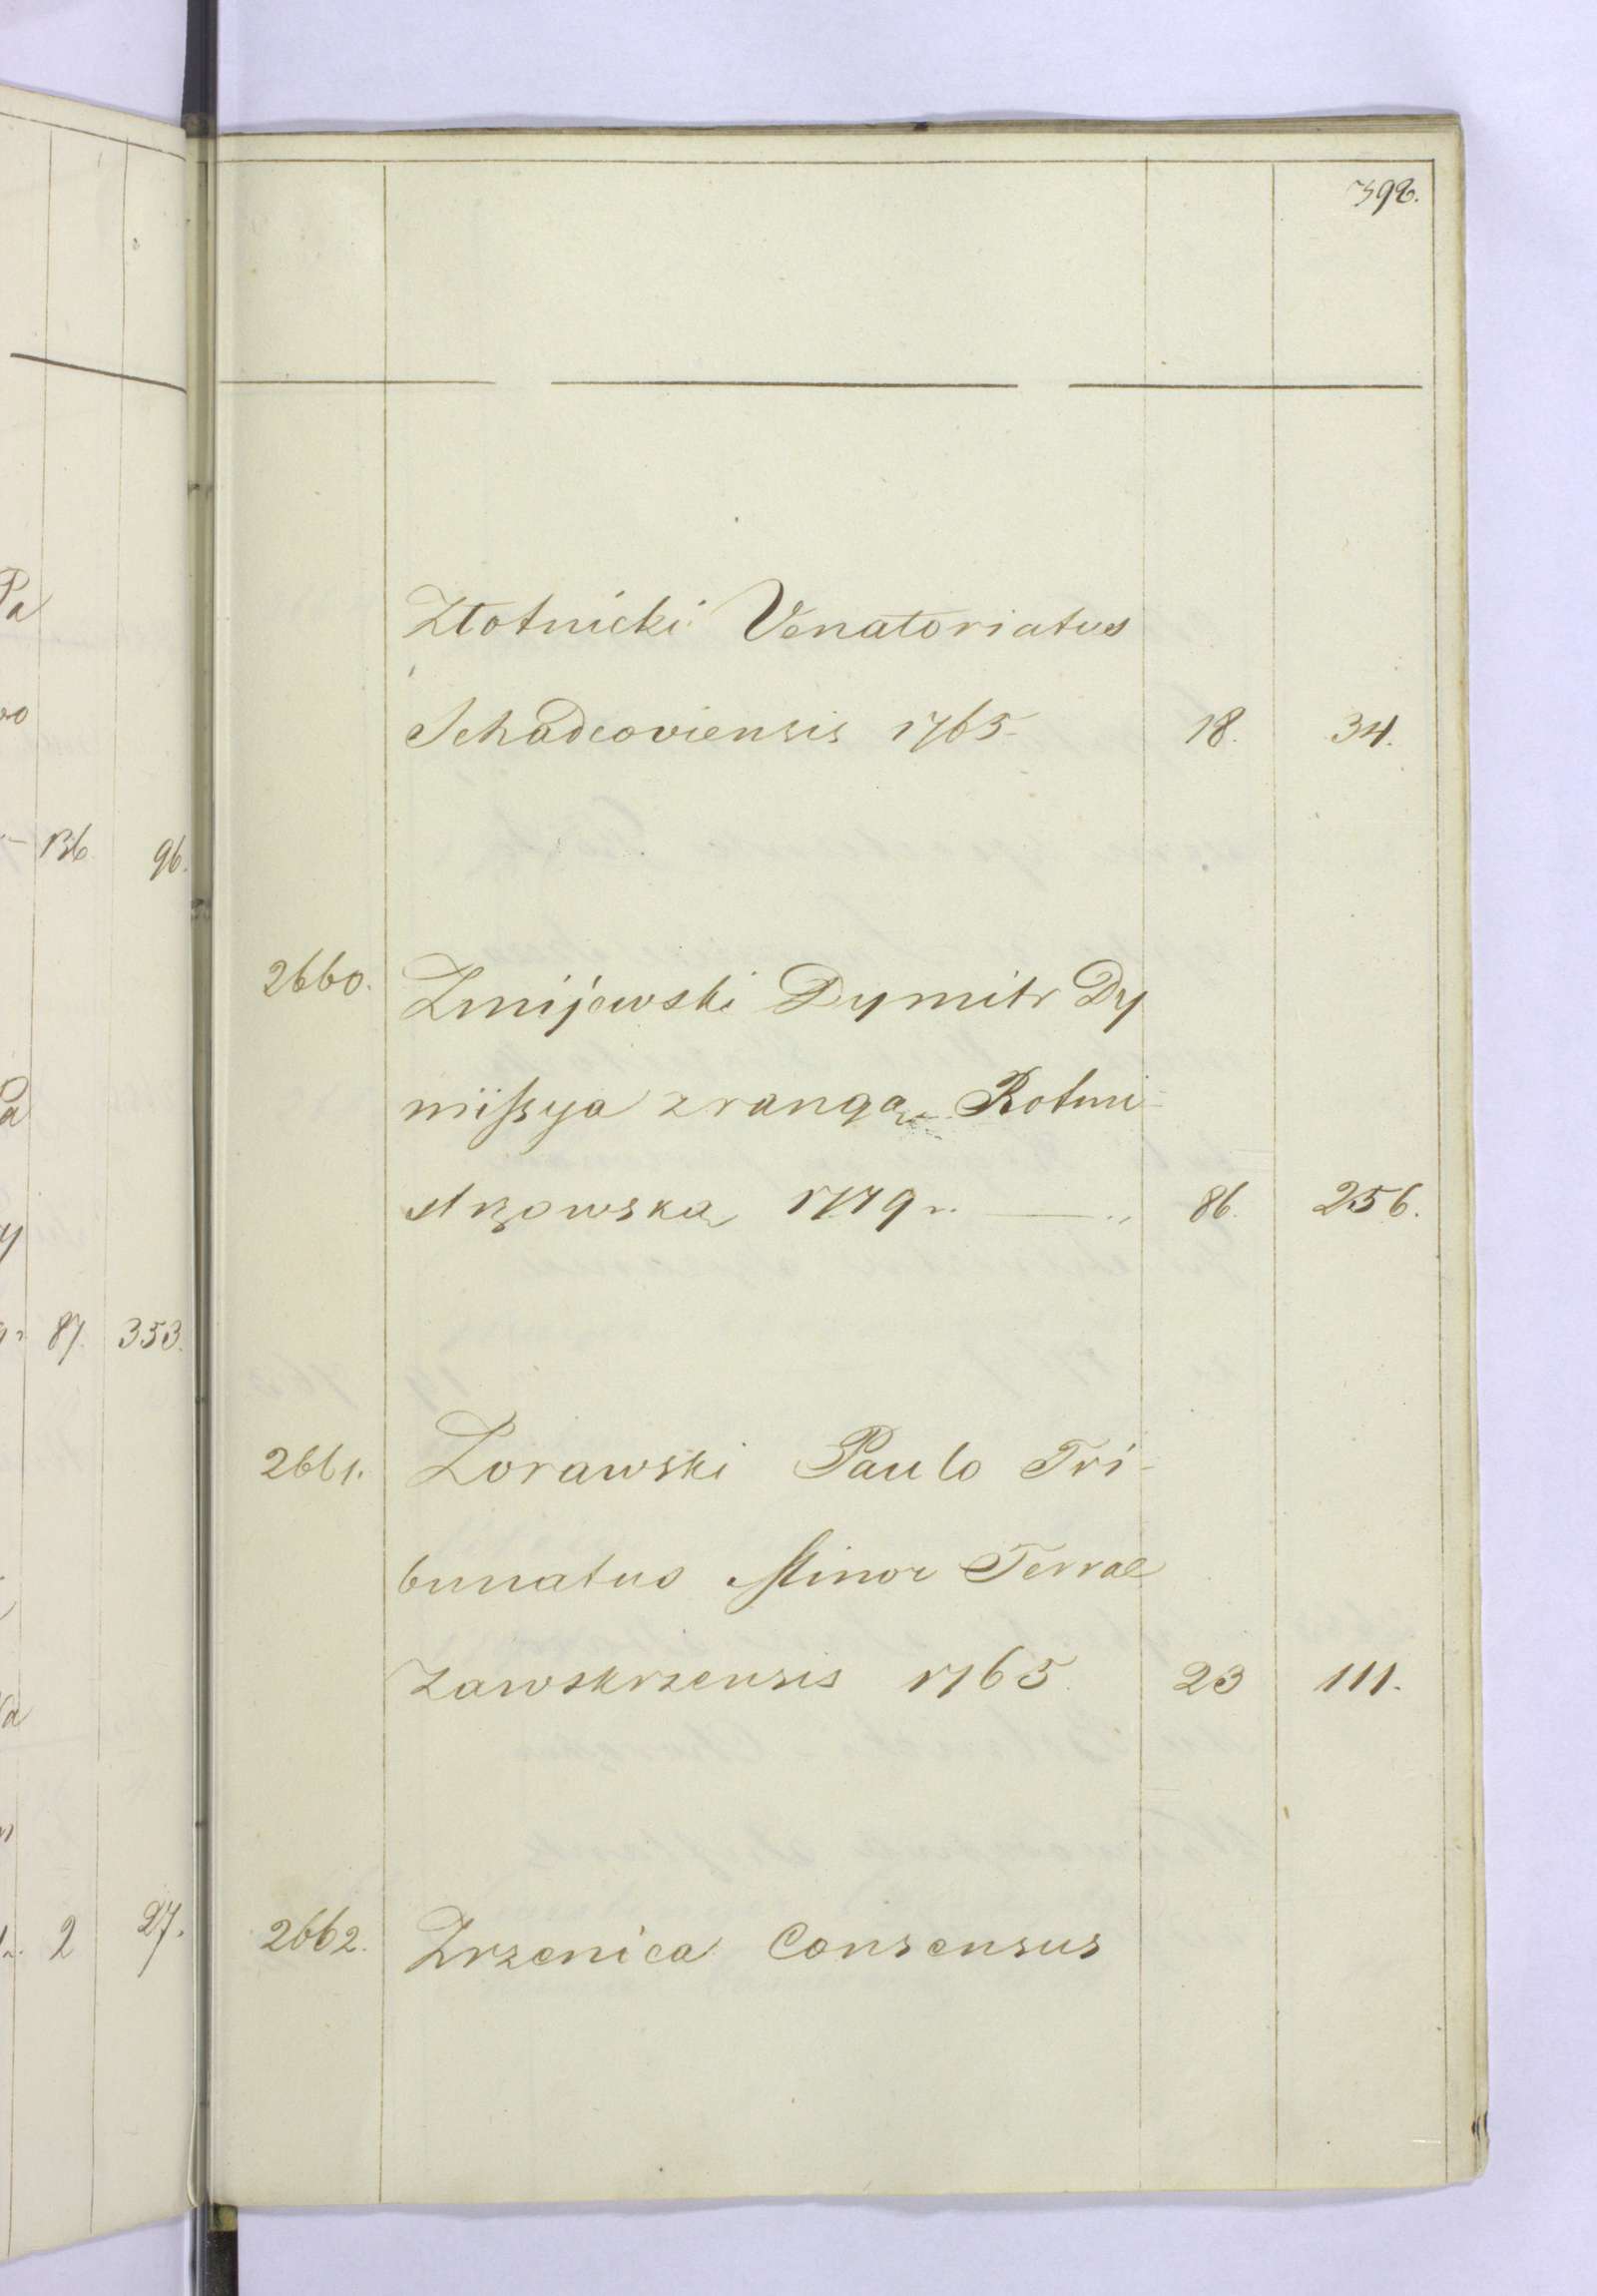 392.
Złotnicki Venatoriatus
Schadcoviensis 1765 18. 34.
2660. Zmijewski Dymitr Dy
missya z rangą Rotmi-
strzowską 1779 r. — „ 86. 256.
2661. Zorawski Paulo Tri-
bunatus Minor Terrae
Zawskrzensis 1765. 23 111.
2662. Zrzenica Consensus
Pa
136 96.
Pa
87. 353.
2 27.